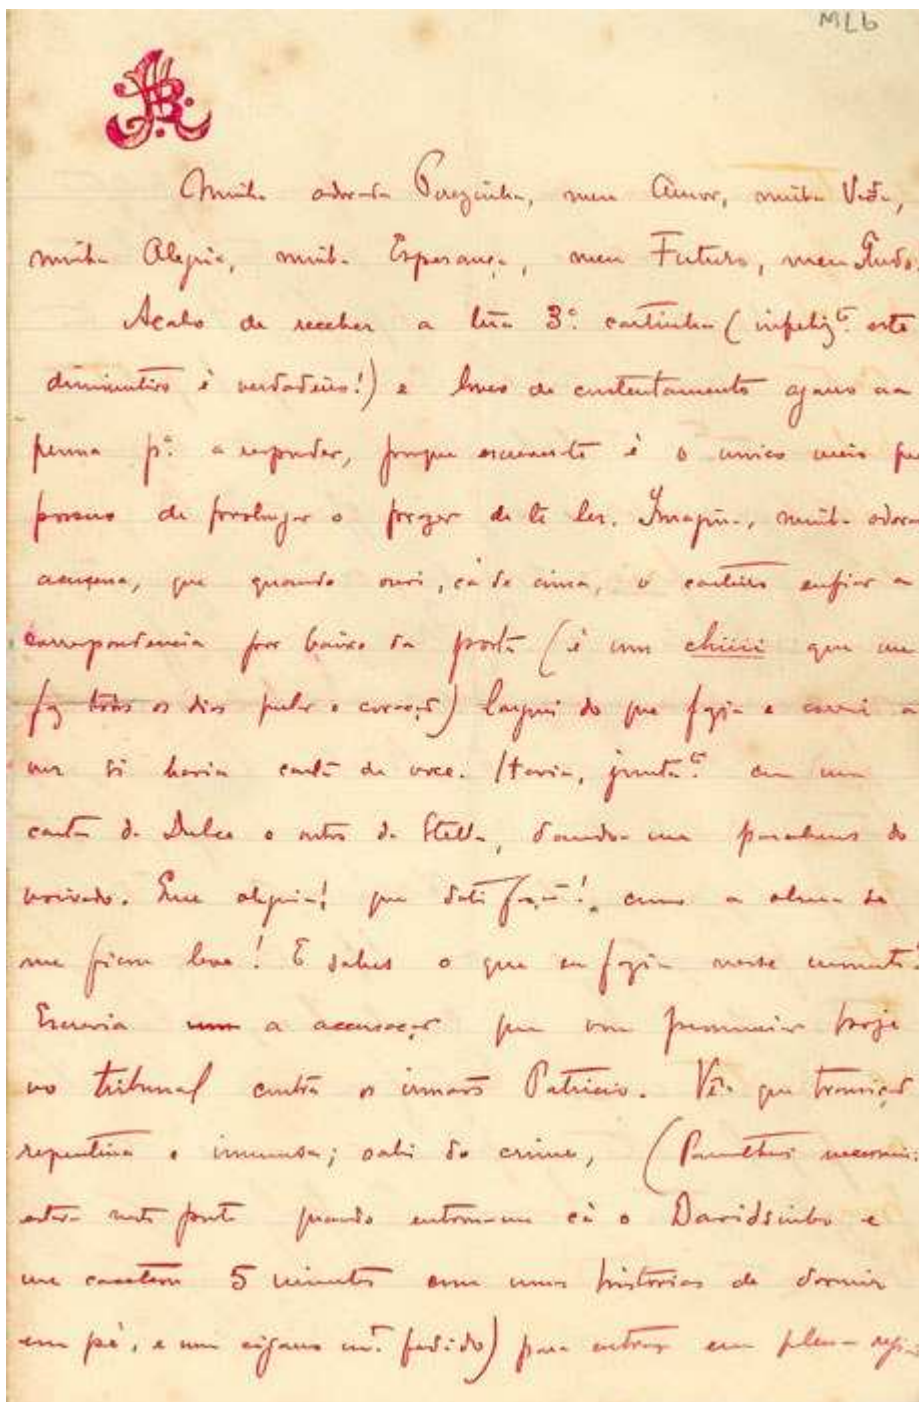 MLb
Minha adorada Purezinha, meu Amor, minha Vida,
minha Alegria, minha Esperança, meu Futuro, meu Tudo.
Acabo de receber a tua 3ª cartinha (infelizte este
diminutivo é verdadeiro!) e louco de contentamento agarro na
penna pª a responder, porque escrever-te é o unico meio que
possuo de prolongar o prazer de te ler. Imagina, minha adora
açucena, que quando ouvi, cá de cima, o carteiro enfiar a
correspondencia por baixo da porta (é um chiiii que me
faz todos os dias pular o coração) larguei do que fazia e corri a
ver si havia carta de voce. Havia, juntate com uma
carta da Dulce e outra da Stella, dando-me parabens do
noivado. Que alegria! que satisfação! como a alma se
me ficou leve! E sabes o que eu fazia nesse momento?
Escrevia a accusação que vou pronunciar hoje
no tribunal contra os irmãos Patricio. Vês que transição
repentina e immensa; sahi do crime, (
estava neste ponto quando entrou-me cá o Davidsinho e
me caceteou 5 minutos com umas historias de dormir
em pé, e um cigarro mto fedido) para entrar em plena